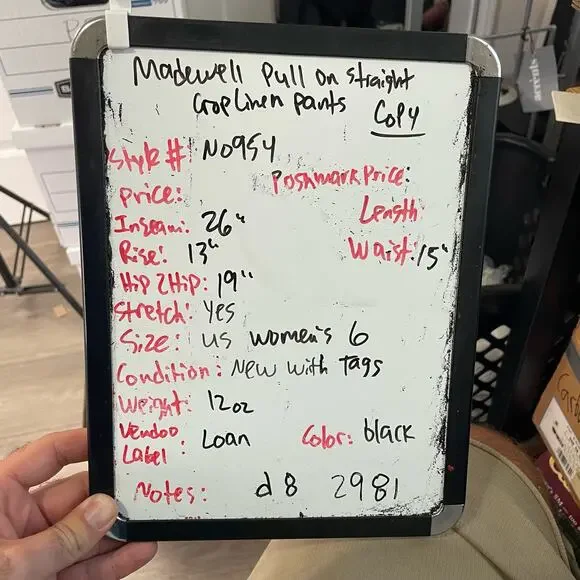 Madewell Pull on straight
crop linen pants
Copy
Style #: N0954
Poshmark Price:
Price:
Length:
Inseam: 26"
Waist: 15"
Rise: 13"
Hip 2 Hip: 19"
Stretch: Yes
Size: US women's 6
Condition: New with Tags
Weight: 12oz
Vendoo
Label: Loan
Color: black
Notes: d8 2981
accents